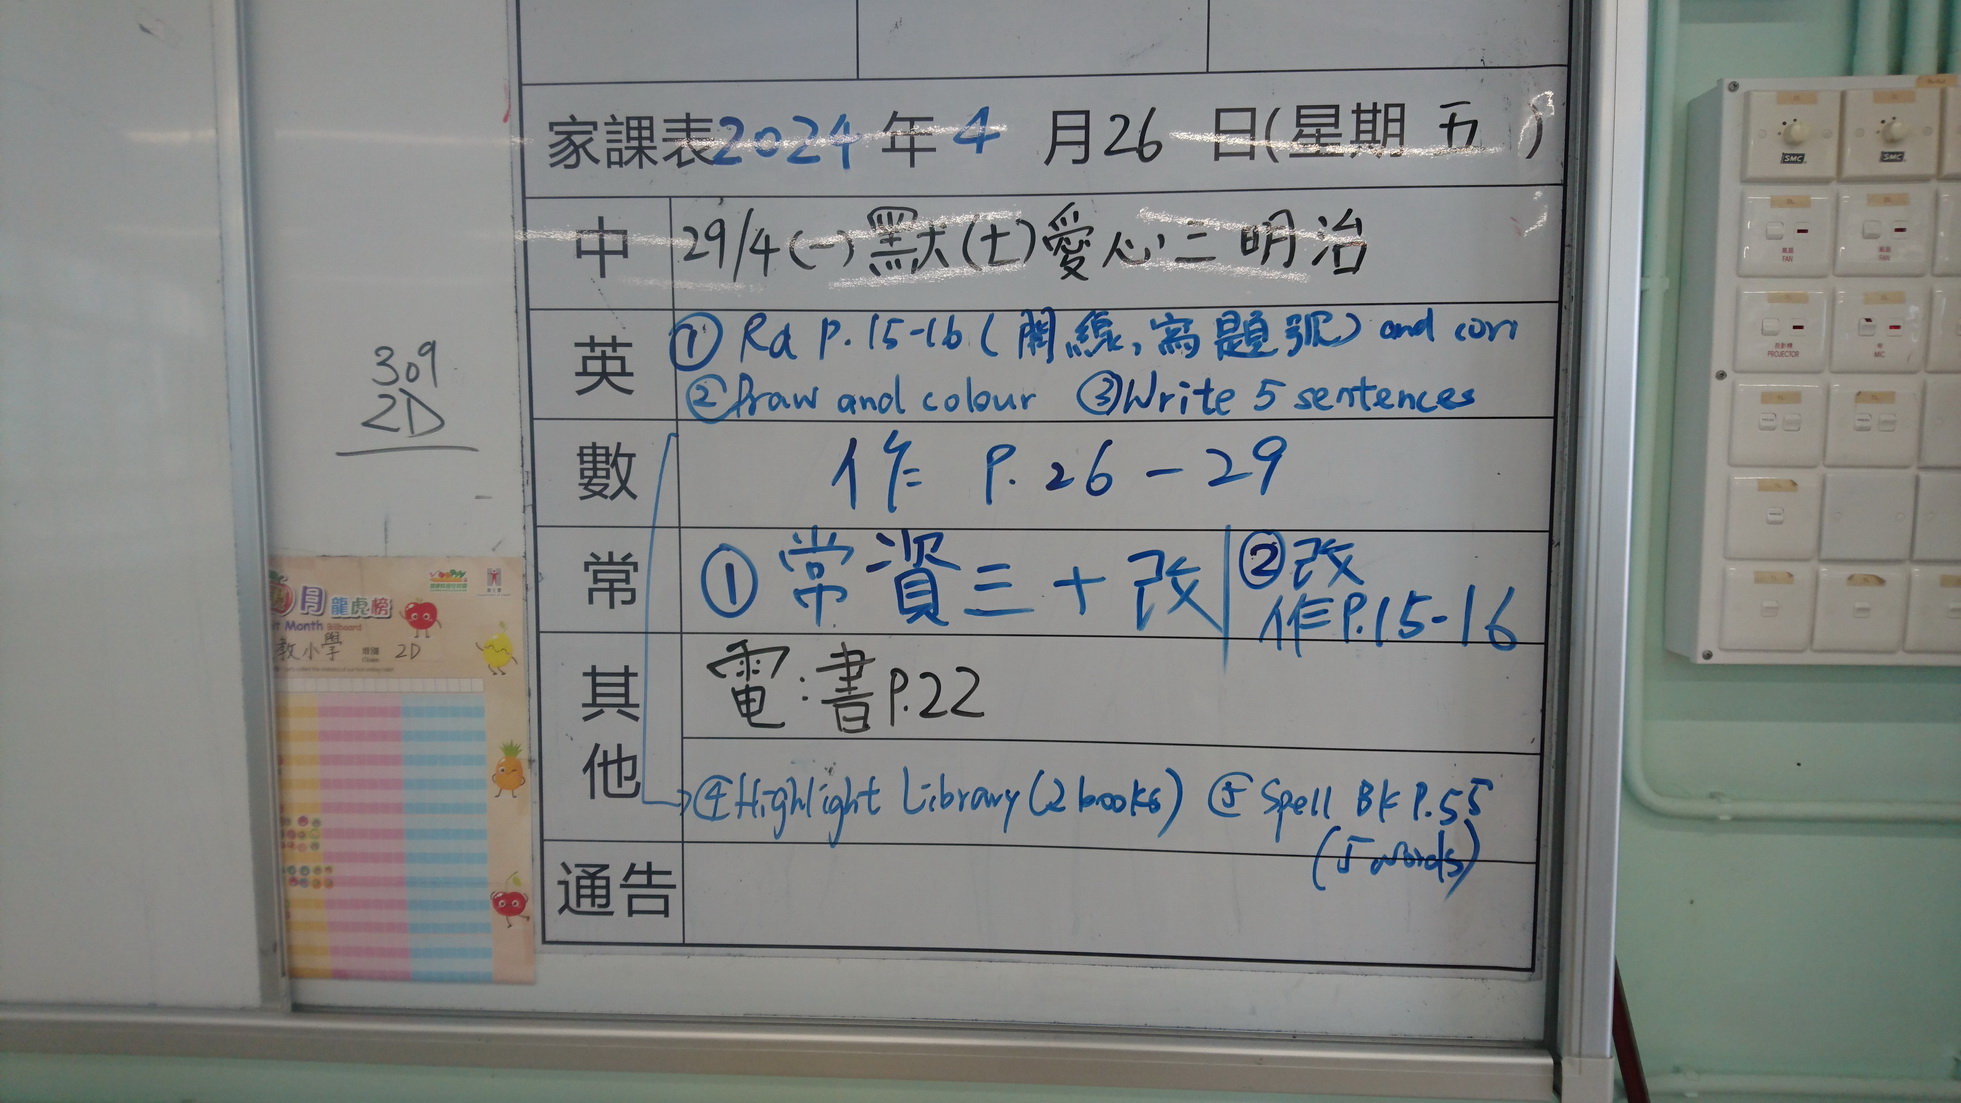 家課表2024年4月26日(星期五)
中 29/4(一)默(十)愛心三明治
英 ①Rd P.15-16(間線,寫題號) and corr
②Draw and colour ③Write 5 sentences
數 作 P.26-29
常 ①常資三+改 ②改
作P.15-16
其他 電:書P.22
④Highlight Library(2 books) ⑤Spell BK P.55
(5 words)
通告
309
2D
月龍虎榜
Month Billboard
教小學 2D
SMC
SMC
FAN
FAN
PROJECTOR
MIC